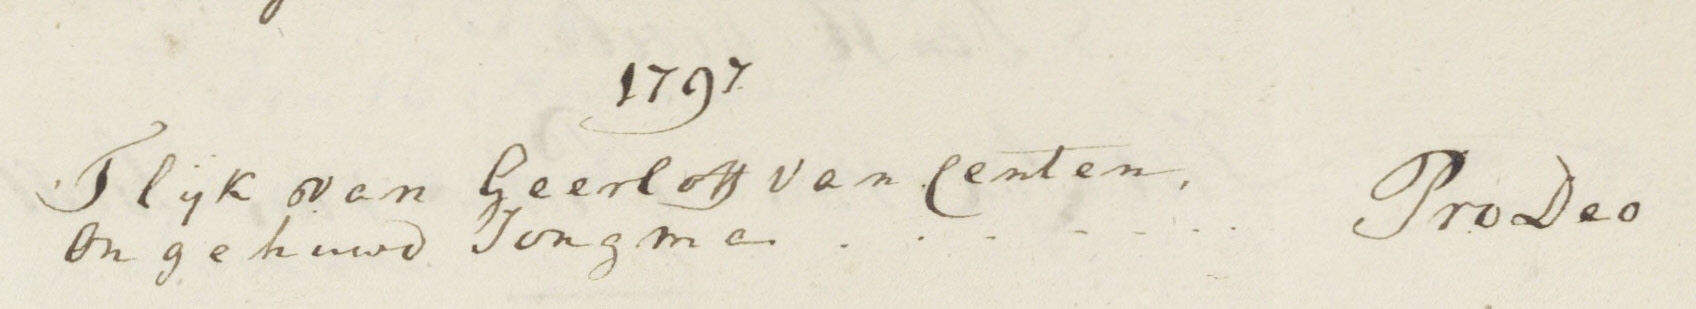 1797
T lijk van Geerloff van Centen,
Ongehuwd Jongma. . . . . . . . . Pro Deo